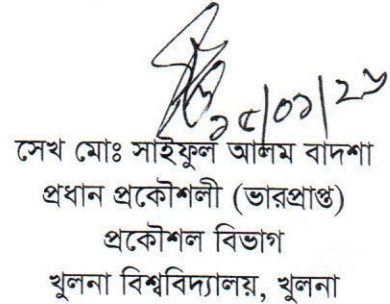 ১৫/০১/২৬
সেখ মোঃ সাইফুল আলম বাদশা
প্রধান প্রকৌশলী (ভারপ্রাপ্ত)
প্রকৌশল বিভাগ
খুলনা বিশ্ববিদ্যালয়, খুলনা